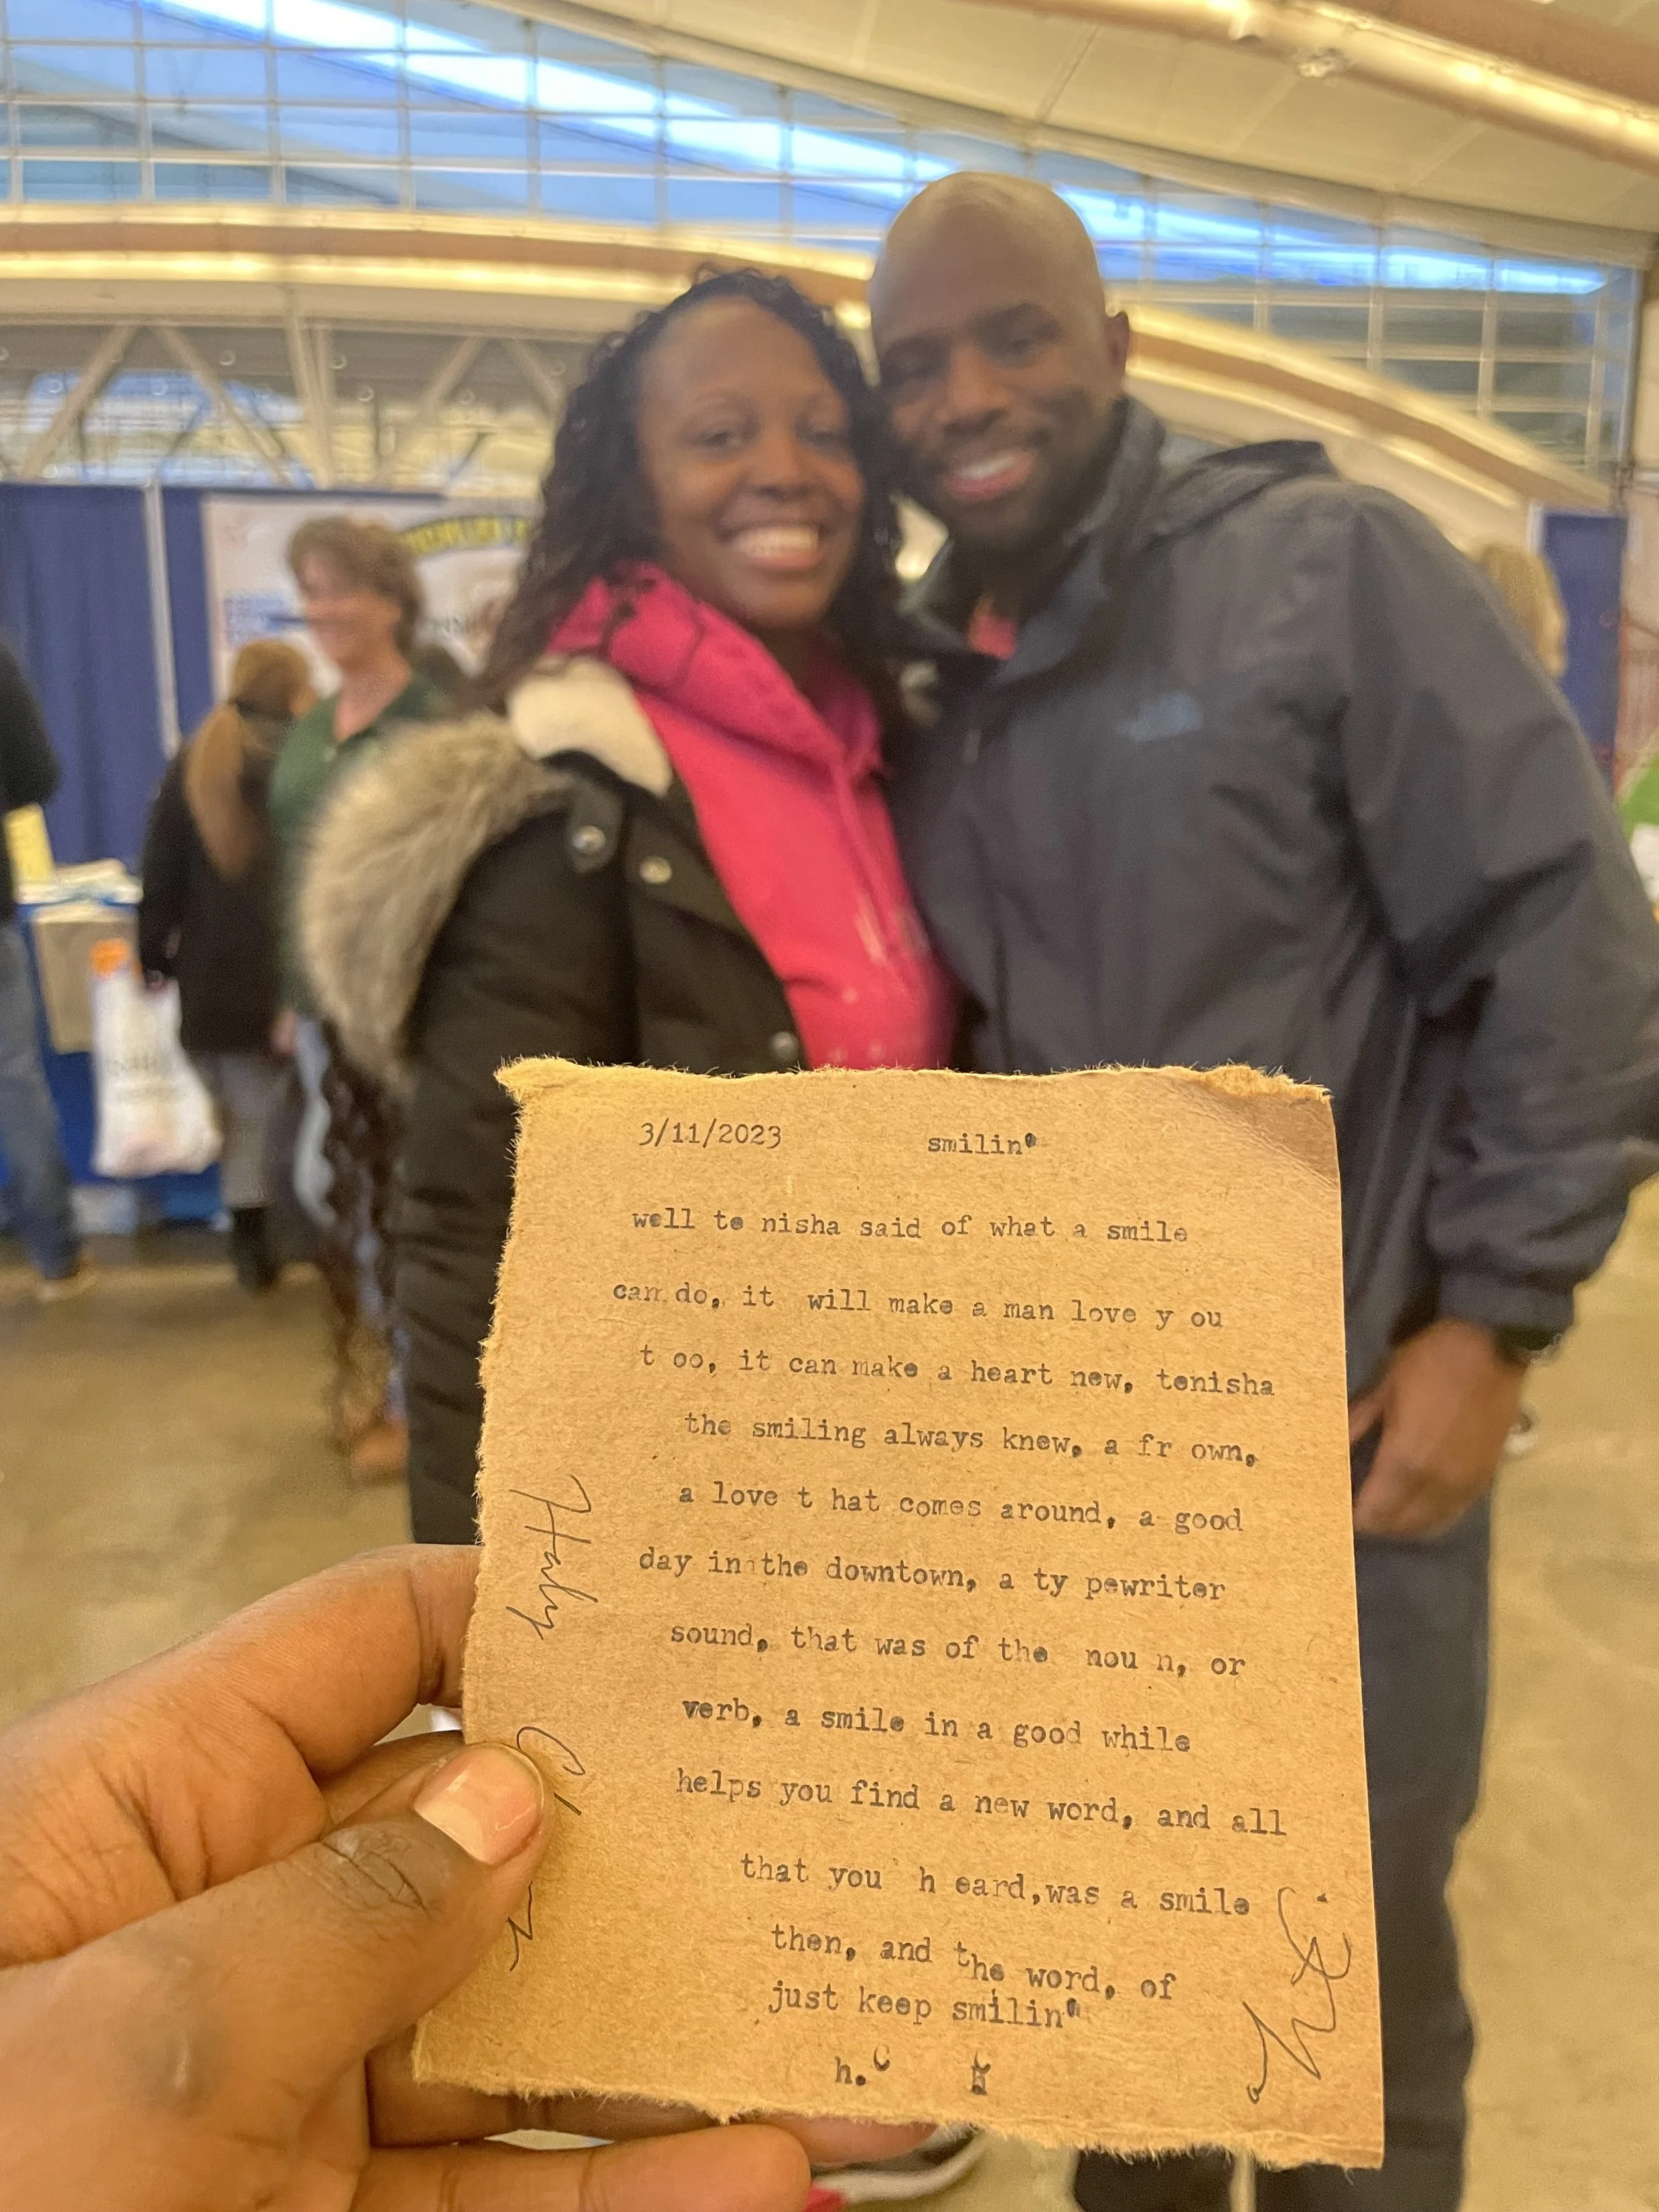 3/11/2023 smilin'
well te nisha said of what a smile
can do, it will make a man love y ou
t oo, it can make a heart new, tenisha
the smiling always knew, a fr own,
a love t hat comes around, a good
day in the downtown, a ty pewriter
sound, that was of the nou n, or
verb, a smile in a good while
helps you find a new word, and all
that you h eard,was a smile
then, and the word, of
just keep smilin'
h.c